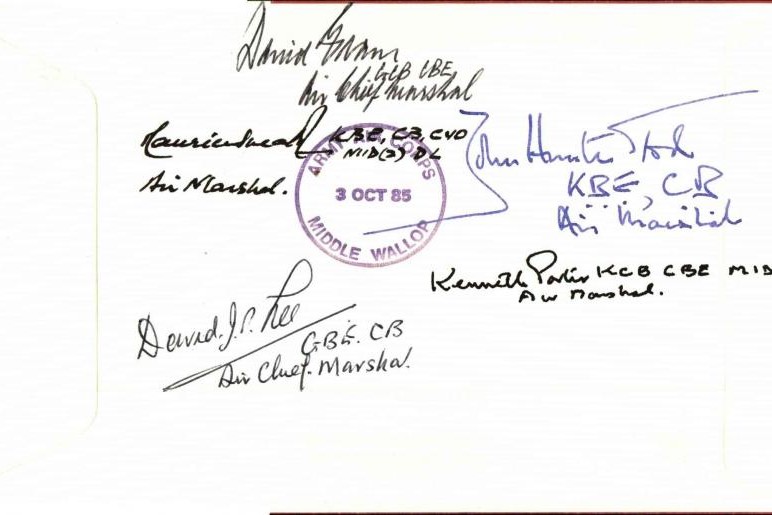 David Evans
GCB CBE
Air Chief Marshal
Maurice Heath KBE, CB, CVO
MID(2) DL
Air Marshal.
ARMY AIR CORPS
3 OCT 85
MIDDLE WALLOP
John Hunter-Tod
KBE, CB
Air Marshal
Kenneth Porter KCB CBE MID
Air Marshal.
David. J. P. Lee
GBE. CB
Air Chief. Marshal.